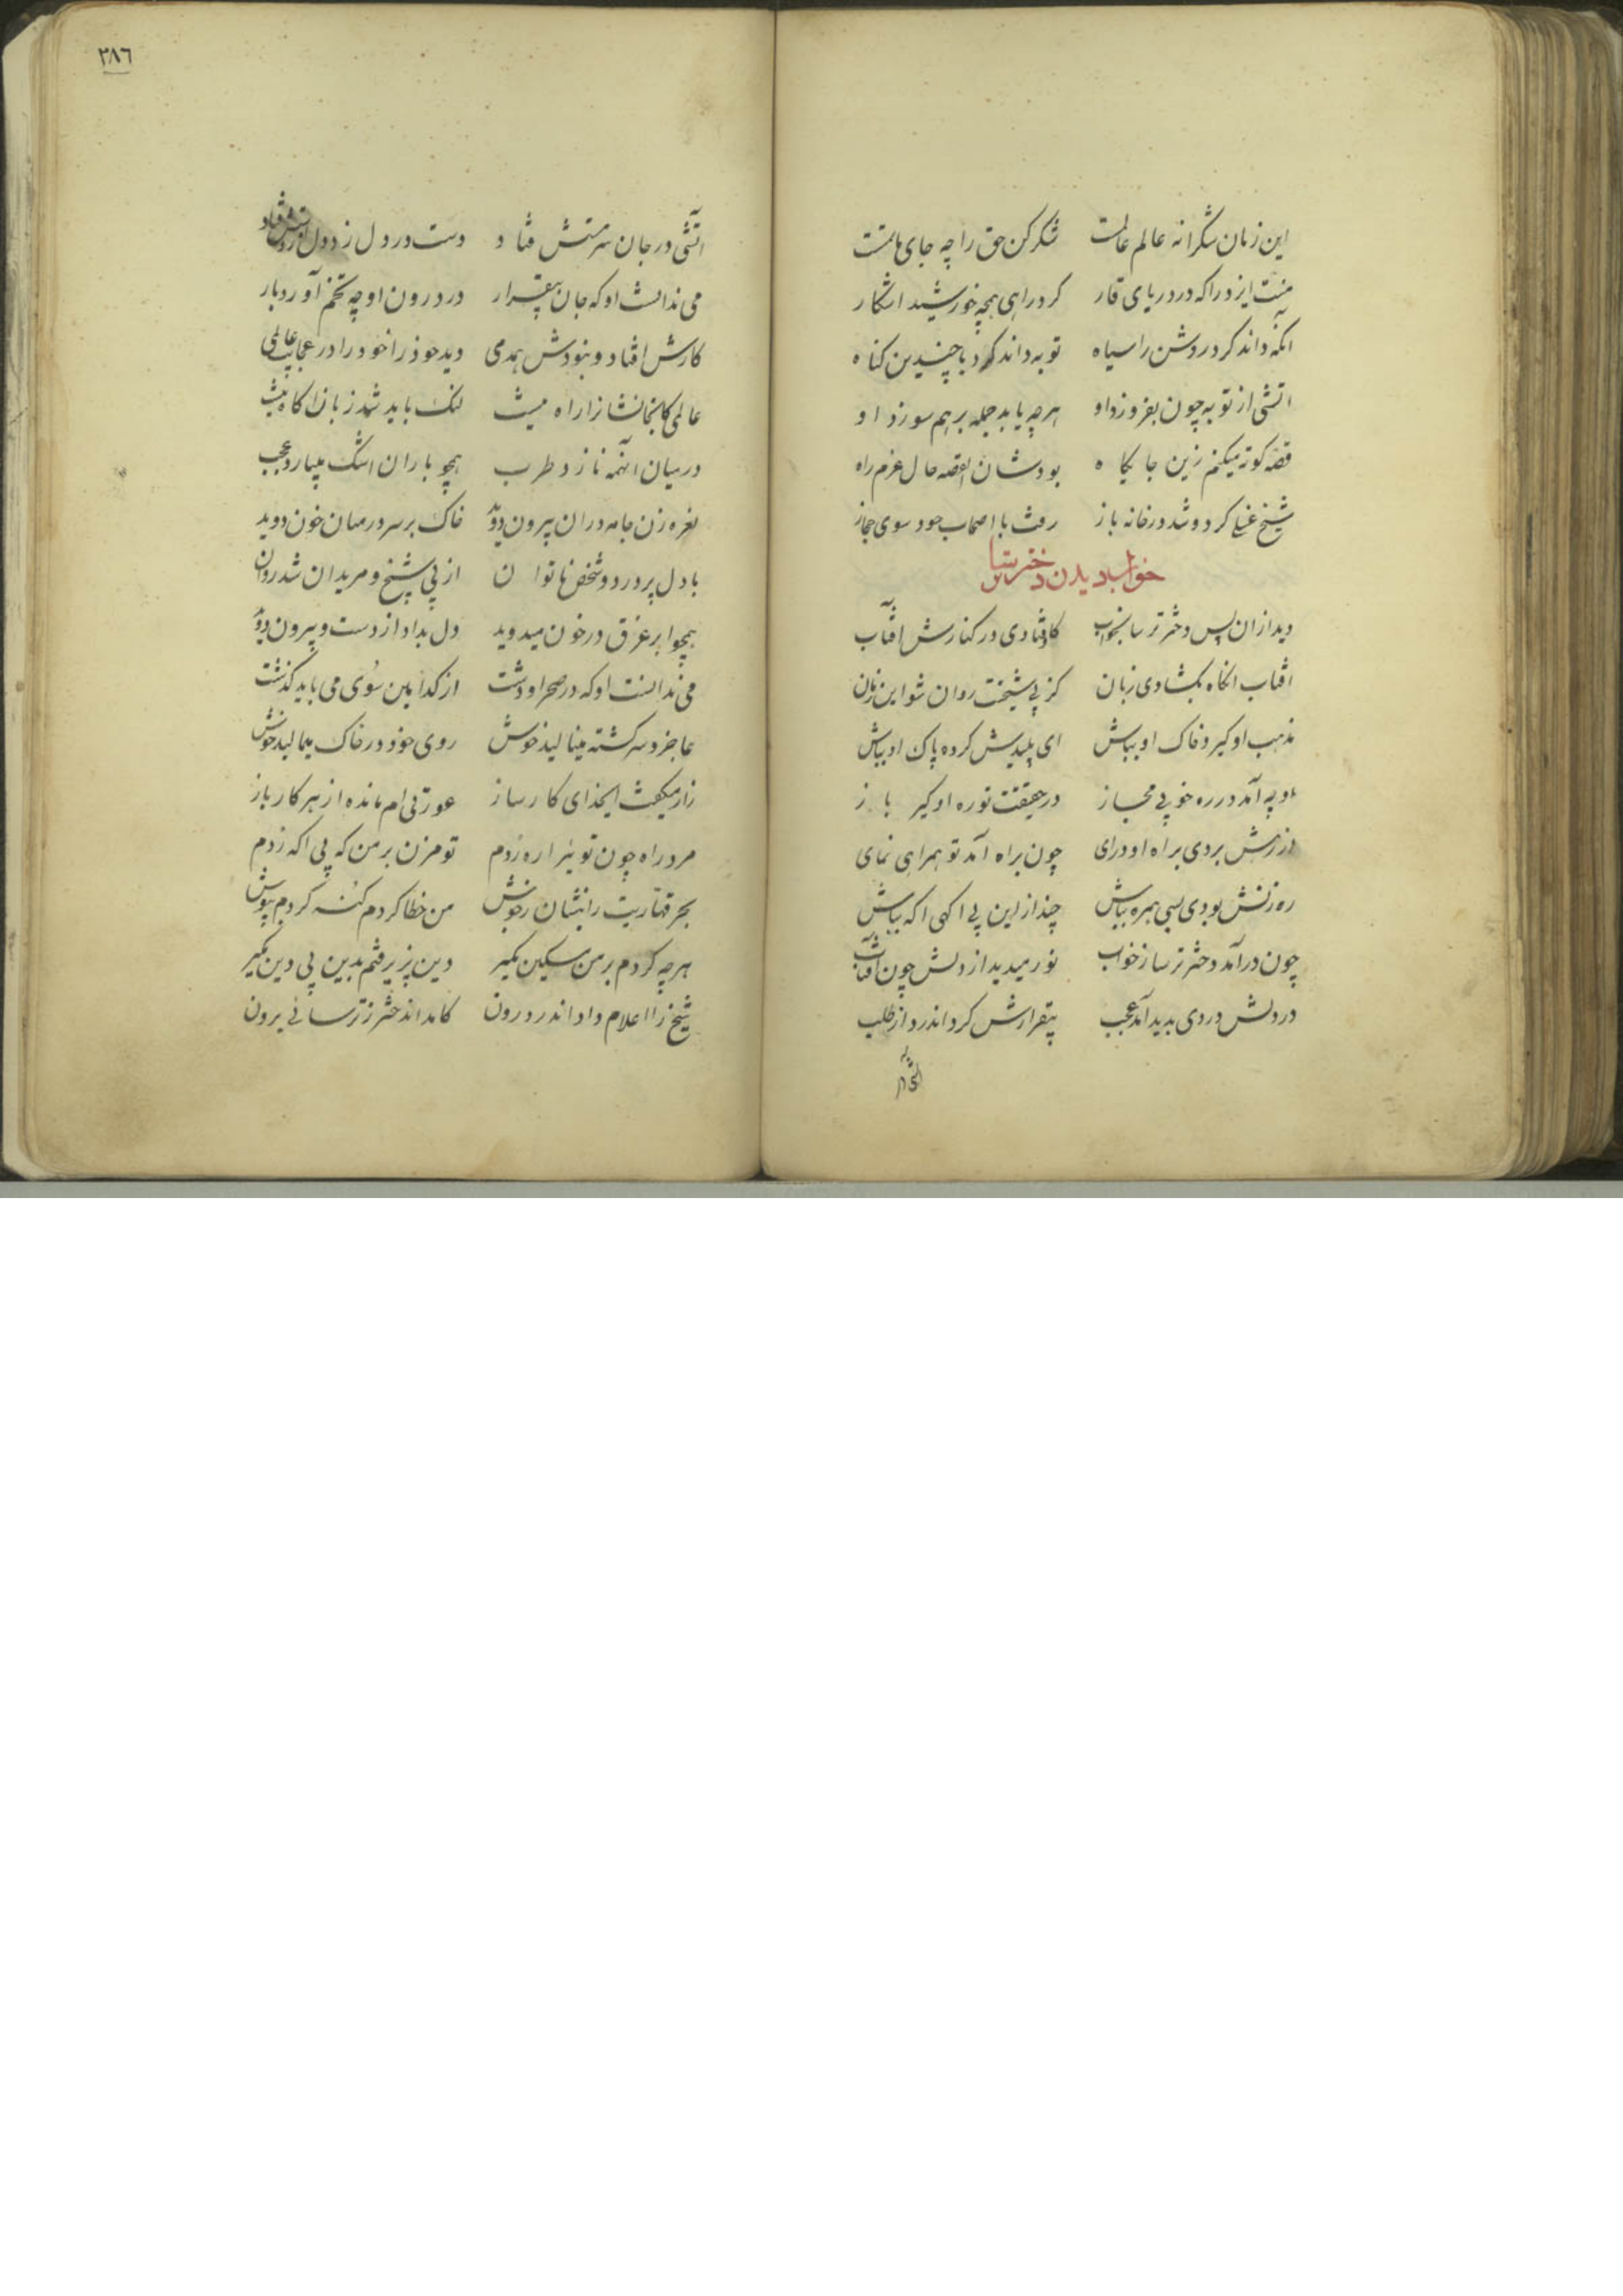 این زمان شکرانه عالم عالمست شکر کن حق را چه جای ماتمست
منت ایزد را که در دریای قار کرد راهی همچو خورشید اشکار
انکه داند کرد روشن را سیاه توبه داند کرد با چندین کناه
اتشی از توبه چون بفروزد او هرچه یابد جمله بر هم سوزد او
قصه کوته میکنم زین جایکاه بودشان القصه حال عزم راه
شیخ غسلی کرد و شد در خانه باز رفت با اصحاب خود سوی حجاز
خواب دیدن دختر ترسا
دید ازان پس دختر ترسا بخواب کاوفتادی در کنارش افتاب
افتاب انکاه بکشادی زبان کز پی شیخت روان شو این زمان
مذهب او کیر و خاک او بباش ای پلیدش کرده پاک او بباش
او چو آمد در ره خو بی مجاز در حقیقت تو ره او کیر باز
از رهش بردی براه او درای چون براه آمد تو همراهی نمای
ره زنش بودی بسی همره بباش چند ازین بی اکهی اکه بباش
چون درآمد دختر ترسا ز خواب نور میدید از دلش چون آفتاب
در دلش دردی پدید آمد عجب بیقرارش کرد اندر دل از طلب
٣٨٦
آتشی در جان سرمستش فتاد دست در دل زد دل از دستش فتاد
می ندانست او که جان بیقرار در درون او چه تخم آورد بار
کارش افتاد و نبودش همدمی دید خود را خود را در عجایب عالمی
عالمی کانجا نشان راه نیست لنک باید شد زبان اکاه نیست
در میان انهمه ناز و طرب همچو باران اشک میبارد عجب
نعره زن جامه دران بیرون دوید خاک بر سر در میان خون دوید
با دل پر درد و شخص ناتوان از پی شیخ و مریدان شد روان
همچو ابر غرق در خون میدوید دل بداد از دست و بیرون دوید
می ندانست او که در صحرا و دشت از کدامین سوی می باید کذشت
عاجز و سرکشته مینالید خوش روی خود در خاک میمالید خوش
زار میکفت ایخدای کارساز عورتی ام مانده از هر کار باز
مرد راه چون تویی را ره زدم تو مزن بر من که بی اکه زدم
بحر قهاریت را بنشان ز جوش من خطا کردم کنه کردم بپوش
هرچه کردم بر من مسکین مکیر دین پزیرفتم بدین بی دین مکیر
شیخ را اعلام داد اندر درون کامد اندختر ز ترسائی برون